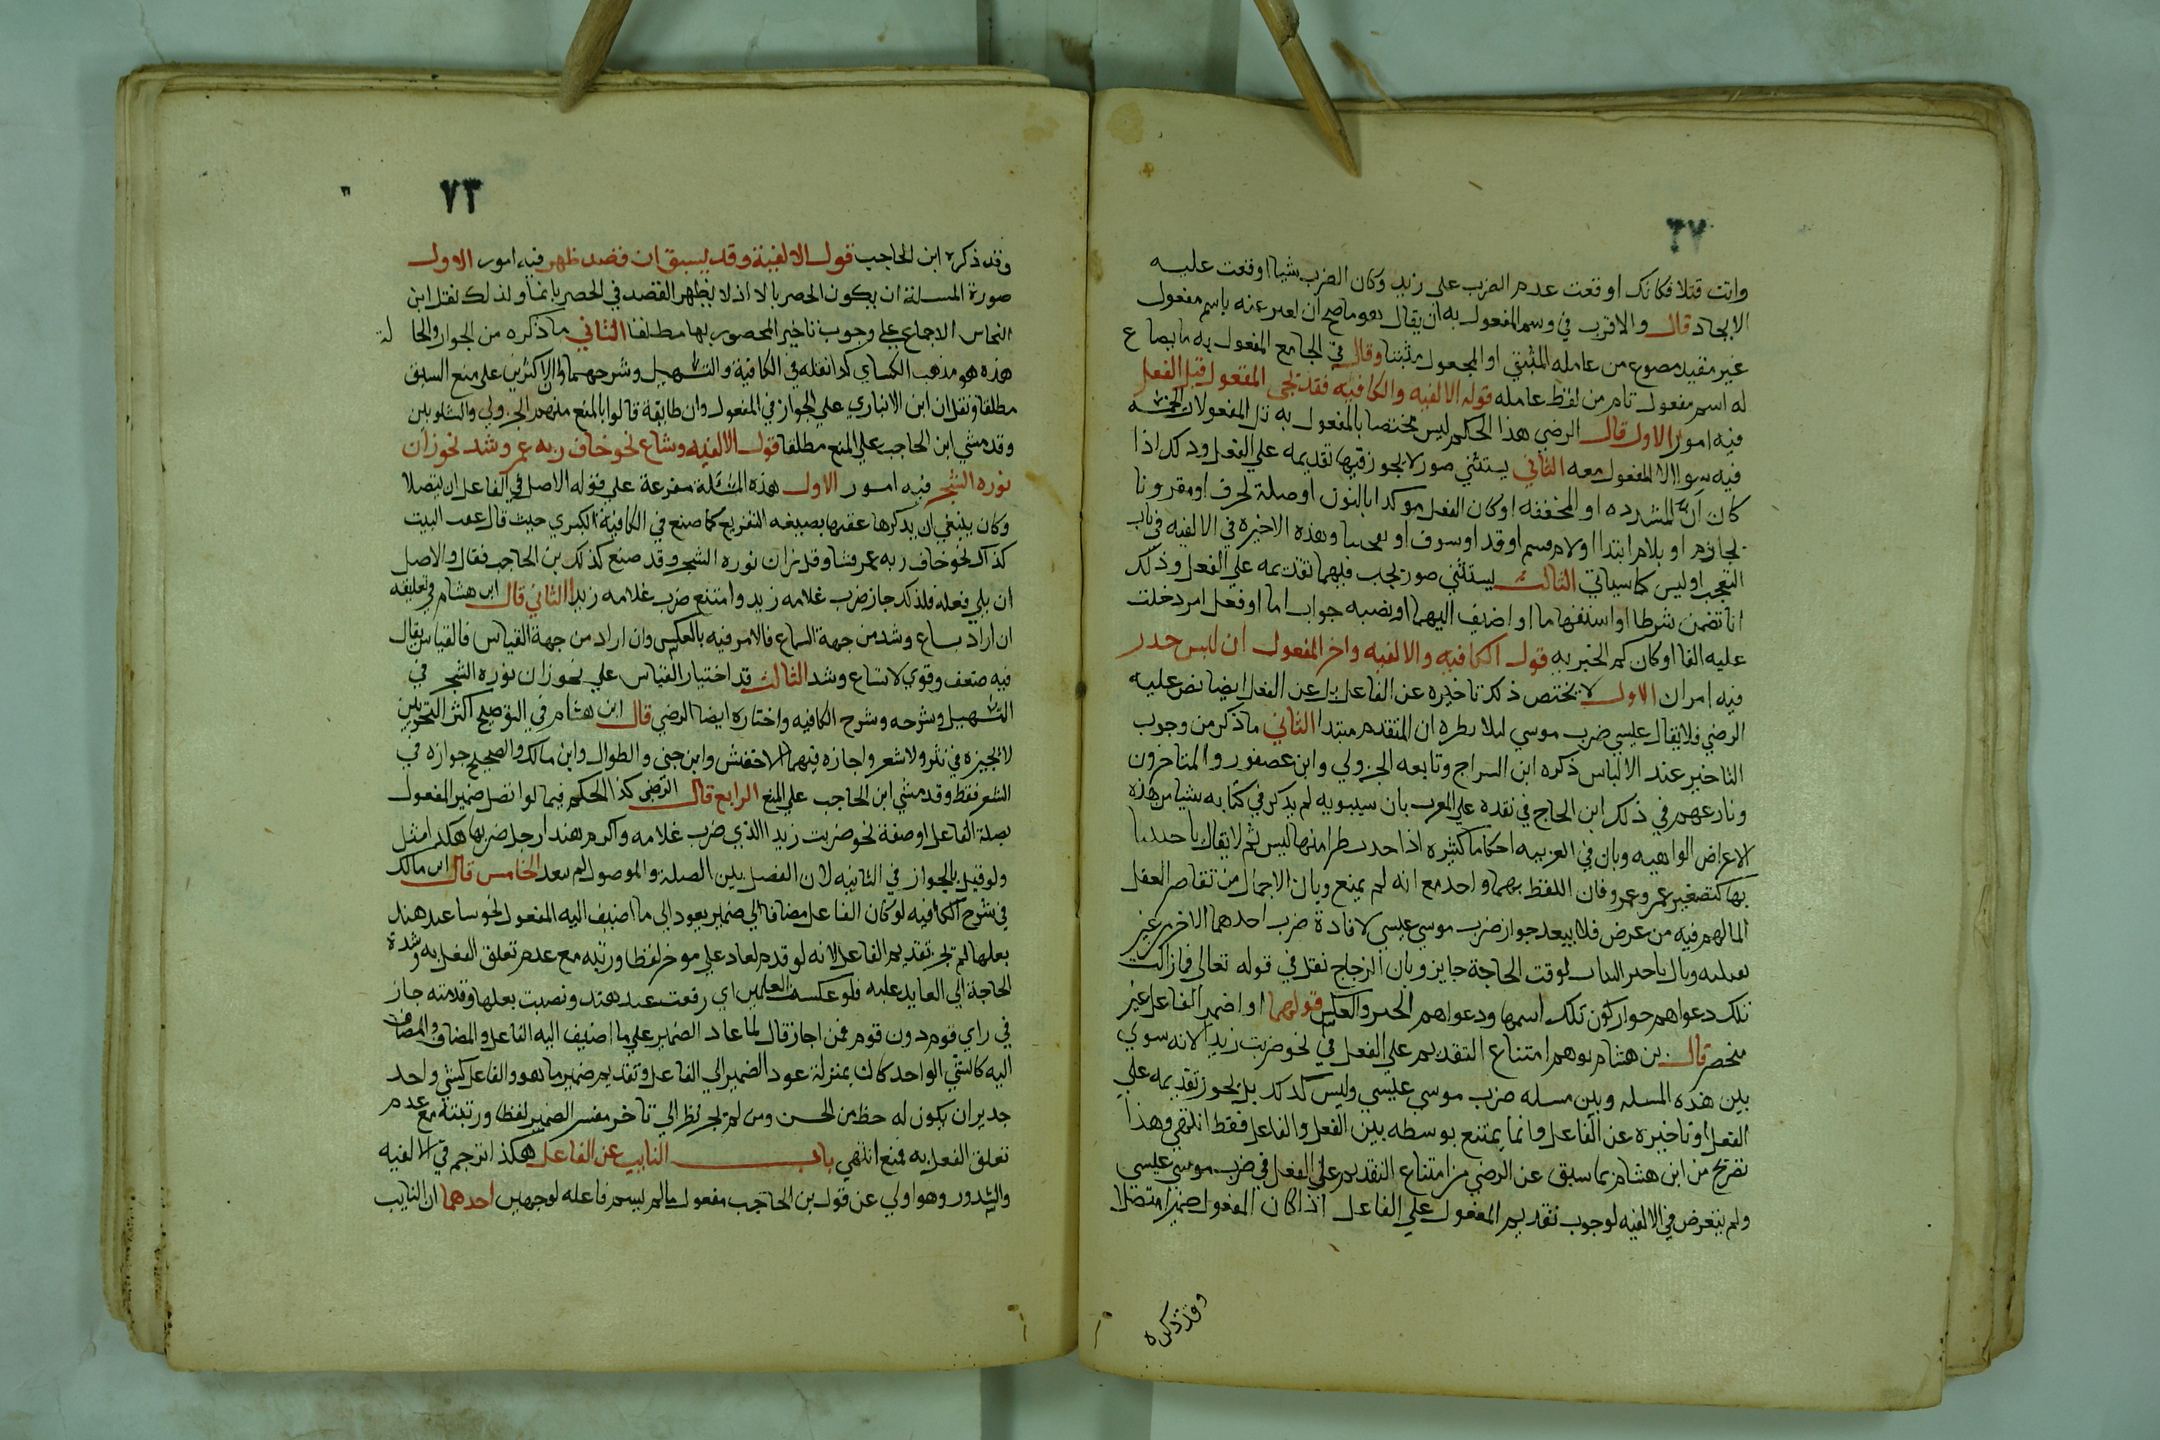 وانت قتلا فكانك اوقعت عدم الضرب علي زيد وكان الضرب شيا اوقعت عليه
الايجاد قال والاقرب في رسم المفعول به ان يقال هو ما صح ان يعبر عنه باسم مفعول
غير مقيد مصوغ من عامله المثبت او المجعول مثبتا وقال في الجامع المفعول به ما يصاغ
له اسم مفعول تام من لفظ عامله قوله الالفيه والكافيه فقد يجي المفعول قبل الفعل
فيه امور الاول قال الرضي هذا الحكم ليس مختصا بالمفعول به بل المفعولات الخمسه
فيه سوا الا المفعول معه الثاني يستثني صور لا يجوز فيها تقديمه علي الفعل وذلك اذا
كان ان المشدده او المخففه او كان الفعل موكدا بالنون او صلة لحرف او مقرونا
بجازم او بلام ابتدا او لام قسم او قد او سوف او وهذه الاخيرة في الالفيه في باب
التعجب اوليس كما سياتي الثالث يستثني صور يجب فيها تقديمه علي الفعل وذلك
اذا تضمن شرطا او استفهاما او اضيف اليهما او نصبه جواب اما او فعل امر دخلت
عليه الفا او كان كم الخبريه قول الكافيه والالفيه واخر المفعول ان لبس حذر
فيه امران الاول لا يختص ذلك تاخيره عن الفاعل بل عن الفعل ايضا نص عليه
الرضي فلا يقال عيسي ضرب موسي ليلا يظن ان المتقدم مبتدا الثاني ما ذكر من وجوب
التاخير عند الالباس ذكره ابن السراج وتابعه الجزولي وابن عصفور والمتاخرون
ونازعهم في ذلك ابن الحاج في نقده علي المقرب بان سيبويه لم يذكر في كتابه شيا من هذه
الاعراض الواهيه وبان في العربيه احكاما كثيره اذا
بها كتصغير عمر وعمرو فان اللفظ بهما واحد مع انه لم يمنع وبان الاجمال من تقاصر العقل
المالهم فيه من عرض فلا يبعد جواز ضرب موسي عيسي لافادة ضرب احدهما الاخر من غير
لوقت الحاجة جايز وبان الزجاج نقل في قوله تعالي فما زالت
تلك دعواهم جواز كون تلك اسمها ودعواهم الخبر والعكس قولهما او اضمر الفاعل غير
منحصر قال بن هشام يوهم امتناع التقديم علي الفعل في نحو ضربت زيدا لانه سوي
بين هذه المسله وبين مسله ضرب موسي عيسي وليس كذلك بل يجوز تقديمه علي
الفعل وتاخيره عن الفاعل وانما يمتنع توسطه بين الفعل والفاعل فقط انتهي وهذا
تصريح من ابن هشام بما سبق عن الرضي من امتناع التقديم علي الفعل في ضرب موسي عيسي
ولم يتعرض في الالفيه لوجوب تقديم المفعول علي الفاعل اذا كان المفعول ضميرا متصلا
وقد ذكره
٧٣
وقد ذكره ابن الحاجب قول الالفية وقد يسبق ان قصد ظهر فيه امور الاول
صورة المسلة ان يكون الحصر بالا اذ لا يظهر القصد في الحصر بانما ولذلك نقل ابن
النحاس الاجماع علي وجوب تاخير المحصور بها مطلقا الثاني ما ذكره من الجواز والحالة
هذه هو مذهب الكساي كذا نقله في الكافية والتسهيل وشرحهما والاكثرين علي منع السبق
مطلقا ونقل ان ابن الانباري علي الجواز في المفعول وان طايفة قالوا بالمنع منهم الجزولي والشلوبين
وقد مشي ابن الحاجب علي المنع مطلقا قول الالفيه وشاع نحو خاف ربه عمر وشذ نحو زان
نوره الشجر فيه امور الاول هذه المسئلة مفرعة علي قوله الاصل في الفاعل ان يتصلا
وكان ينبغي ان يذكرها عقبها بصيغه التفريع كما صنع في الكافية الكبري حيث قال عقب البيت
كذاك نحو خاف ربه عمر فشا وقل زان نوره الشجر وقد صنع كذلك بن الحاجب فقال والاصل
ان يلي فعله فلذلك جاز ضرب غلامه زيد وامتنع ضرب غلامه زيدا الثاني قال ابن هشام في تعليقه
ان اراد بشاع وشذ من جهة السماع فالامر فيه بالعكس وان اراد من جهة القياس فالقياس يقال
فيه ضعف وقوي لا شاع وشذ الثالث قد اختيار القياس علي نحو زان نوره الشجر في
التسهيل وشرحه وشرح الكافيه واختاره ايضا الرضي قال ابن هشام في التوضيح اكثر النحويين
لا تجيزه في نثر ولا شعر واجازه فيهما الاخفش وابن جني والطوال وابن مالك والصحيح جوازه في
الشعر فقط وقد مشي ابن الحاجب علي المنع الرابع قال الرضي كذا الحكم فيما لو اتصل ضمير المفعول
بصلة الفاعل او صفة نحو ضربت زيدا الذي ضرب غلامه واكرم هندا رجل ضربها هكذا مثل
ولو قيل بالجواز في الثانيه لان الفصل بين الصلة والموصول لم يبعد الخامس قال ابن مالك
في شرح الكافيه لو كان الفاعل مضافا الي ضمير يعود الي ما اضيف اليه المفعول نحو سا عبد هند
بعلها لم يجز تقديم الفاعل لانه لو قدم لعاد علي موخر لفظا ورتبه مع عدم تعلق الفعل به وشدة
الحاجة الي العايد عليه فلو عكست العملين اي رفعت عبد هند ونصبت بعلها وقدمته جاز
في راي قوم دون قوم فمن اجاز قال لما عاد الضمير علي ما اضيف اليه الفاعل والمضاف والمضاف
اليه كالشي الواحد كان بمنزلة عود الضمير الي الفاعل وتقديم ضمير ما هو والفاعل كشي واحد
جدير ان يكون له حظ من الحسن ومن لم يجز نظر الي تاخر مفسر الضمير لفظا ورتبته مع عدم
تعلق الفعل به فمنع انتهي باب النايب عن الفاعل هكذا ترجم في الالفيه
والشذور وهو اولي عن قول بن الحاجب مفعول ما لم يسم فاعله لوجهين احدهما ان النايب